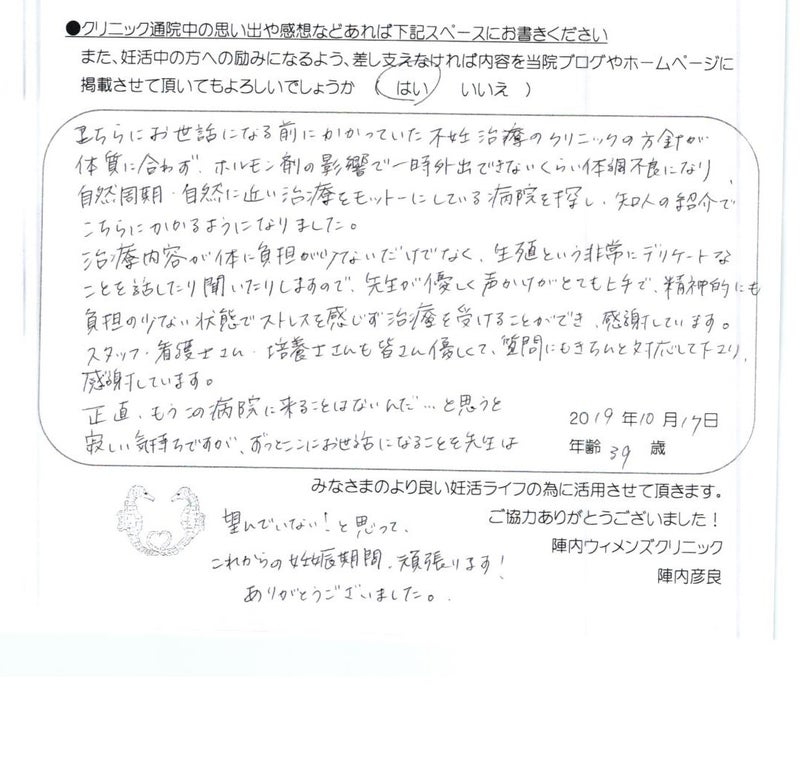 ●クリニック通院中の思い出や感想などあれば下記スペースにお書きください
また、妊活中の方への励みになるよう、差し支えなければ内容を当院ブログやホームページに
掲載させて頂いてもよろしいでしょうか （ はい いいえ ）
こちらにお世話になる前にかかっていた不妊治療のクリニックの方針が
体質に合わず、ホルモン剤の影響で一時外出できないくらい体調不良になり、
自然周期・自然に近い治療をモットーにしている病院を探し、知人の紹介で
こちらにかかるようになりました。
治療内容が体に負担が少ないだけでなく、生殖という非常にデリケートな
ことを話したり聞いたりしますので、先生が優しく声かけがとても上手で、精神的にも
負担の少ない状態でストレスを感じず治療を受けることができ、感謝しています。
スタッフ・看護士さん・培養士さんも皆さん優しくて、質問にもきちんと対応して下さり、
感謝しています。
正直、もうこの病院に来ることはないんだ…と思うと
寂しい気持ちですが、ずっとここにお世話になることを先生は
2019年10月17日
年齢 39 歳
みなさまのより良い妊活ライフの為に活用させて頂きます。
ご協力ありがとうございました！
陣内ウィメンズクリニック
陣内彦良
望んでいない！と思って、
これからの妊娠期間、頑張ります！
ありがとうございました。